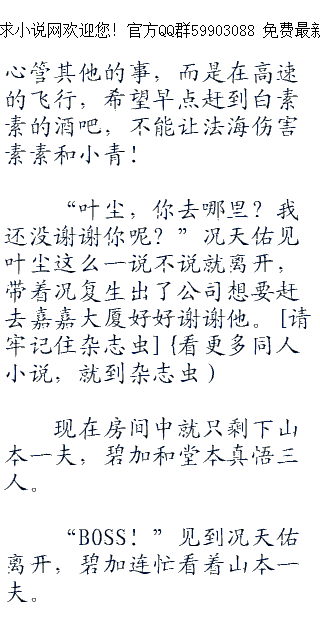 求小说网欢迎您！官方QQ群59903088 免费最新
心管其他的事，而是在高速
的飞行，希望早点赶到白素
素的酒吧，不能让法海伤害
素素和小青！
“叶尘，你去哪里？我
还没谢谢你呢？”况天佑见
叶尘这么一说不说就离开，
带着况复生出了公司想要赶
去嘉嘉大厦好好谢谢他。[请
牢记住杂志虫]{看更多同人
小说，就到杂志虫）
现在房间中就只剩下山
本一夫，碧加和堂本真悟三
人。
“BOSS！”见到况天佑
离开，碧加连忙看着山本一
夫。